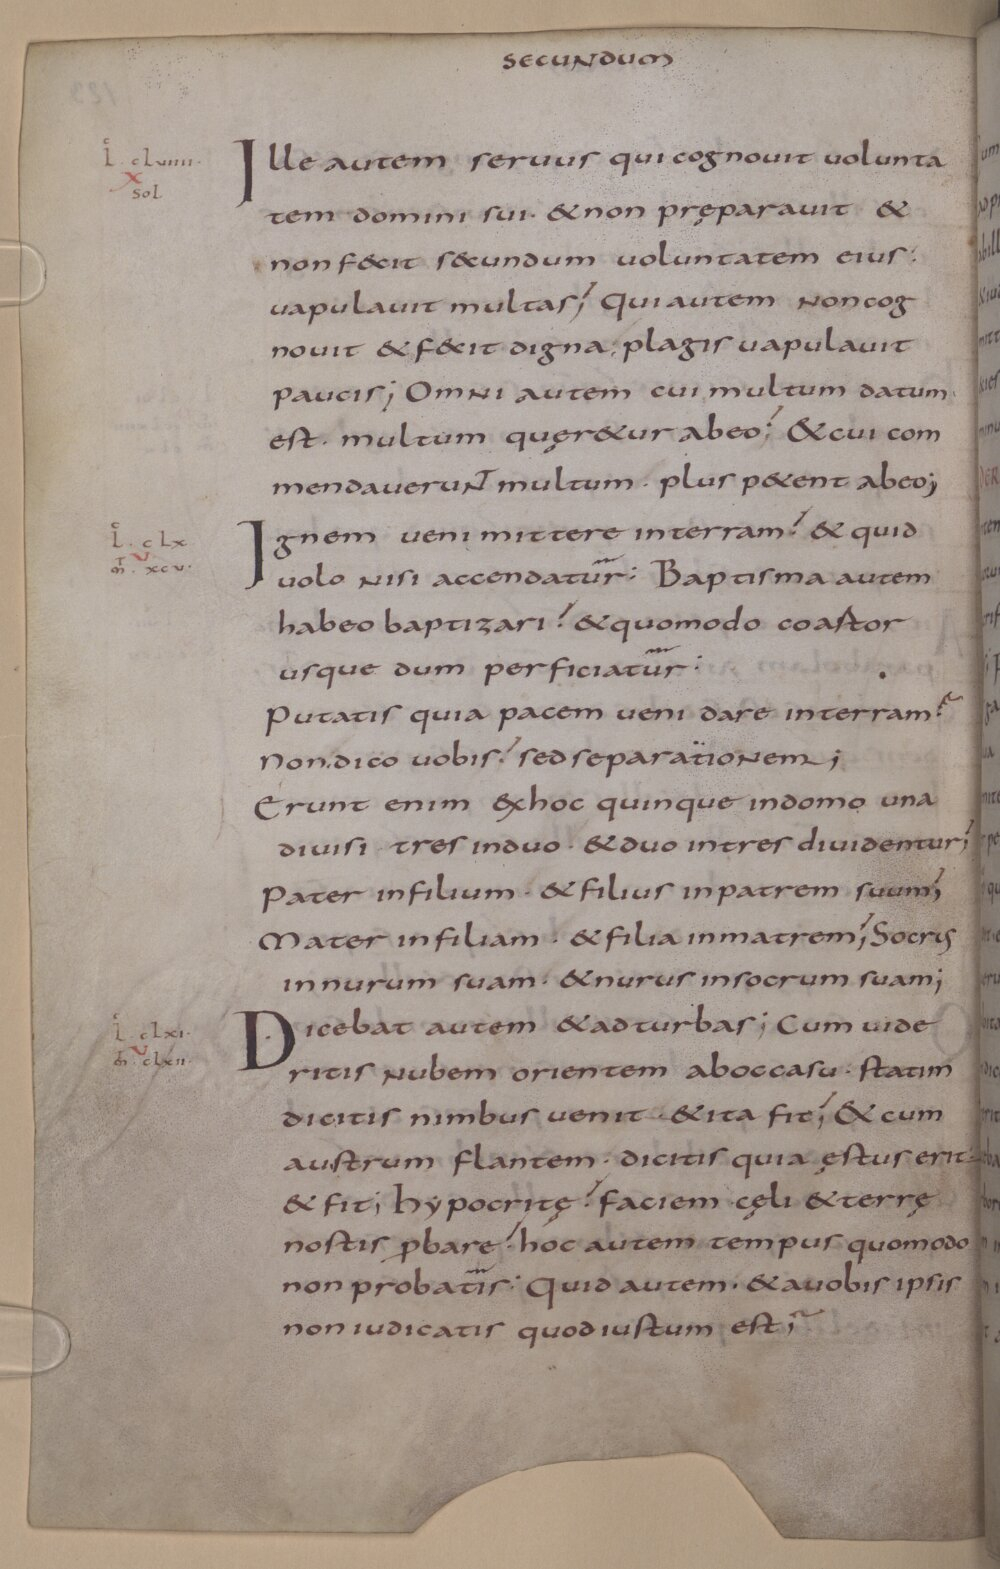 SECUNDUM
L. clviiii.
X
sol
Ille autem seruus qui cognouit uolunta
tem domini sui. & non pręparauit &
non f&cit s&cundum uoluntatem eius:
uapulauit multas; Qui autem non cog
nouit & f&cit digna, plagis uapulauit
paucis; Omni autem cui multum datum
est. multum quęr&ur abeo; & cui com
mendauerunt multum. plus p&ent abeo;
L. clx.
v
m. xcv.
Ignem ueni mittere interram? & quid
uolo nisi accendatur: Baptisma autem
habeo baptizari? & quomodo coastor
usque dum perficiatur:
Putatis quia pacem ueni dare interram?
Non dico uobis? sed separationem;
Erunt enim exhoc quinque indomo una
diuisi. tres induo. & duo intres diuidentur;
Pater infilium. & filius inpatrem suum;
Mater infiliam. & filia inmatrem; Socrus
innurum suam. & nurus insocrum suam;
L. clxi.
v
m. clxii.
Dicebat autem & adturbas; Cum uide
ritis nubem orientem aboccasu. statim
dicitis nimbus uenit. & ita fit; & cum
austrum flantem. dicitis quia ęstus erit:
& fit; hypocritę? faciem cęli & terrę
nostis ꝓbare? hoc autem tempus quomodo
non probatis: Quid autem. & auobis ipsis
non iudicatis quod iustum est;